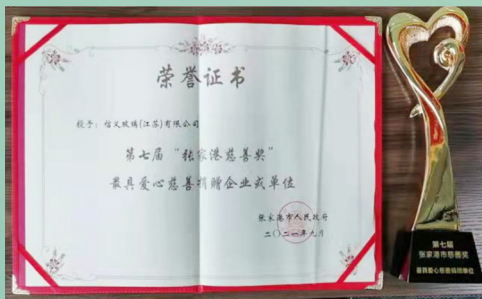 荣誉证书
授予：信义玻璃(江苏)有限公司
第七届“张家港慈善奖”
最具爱心慈善捐赠企业或单位
张家港市人民政府
二〇二一年九月
第七届
张家港市慈善奖
最具爱心慈善捐赠单位